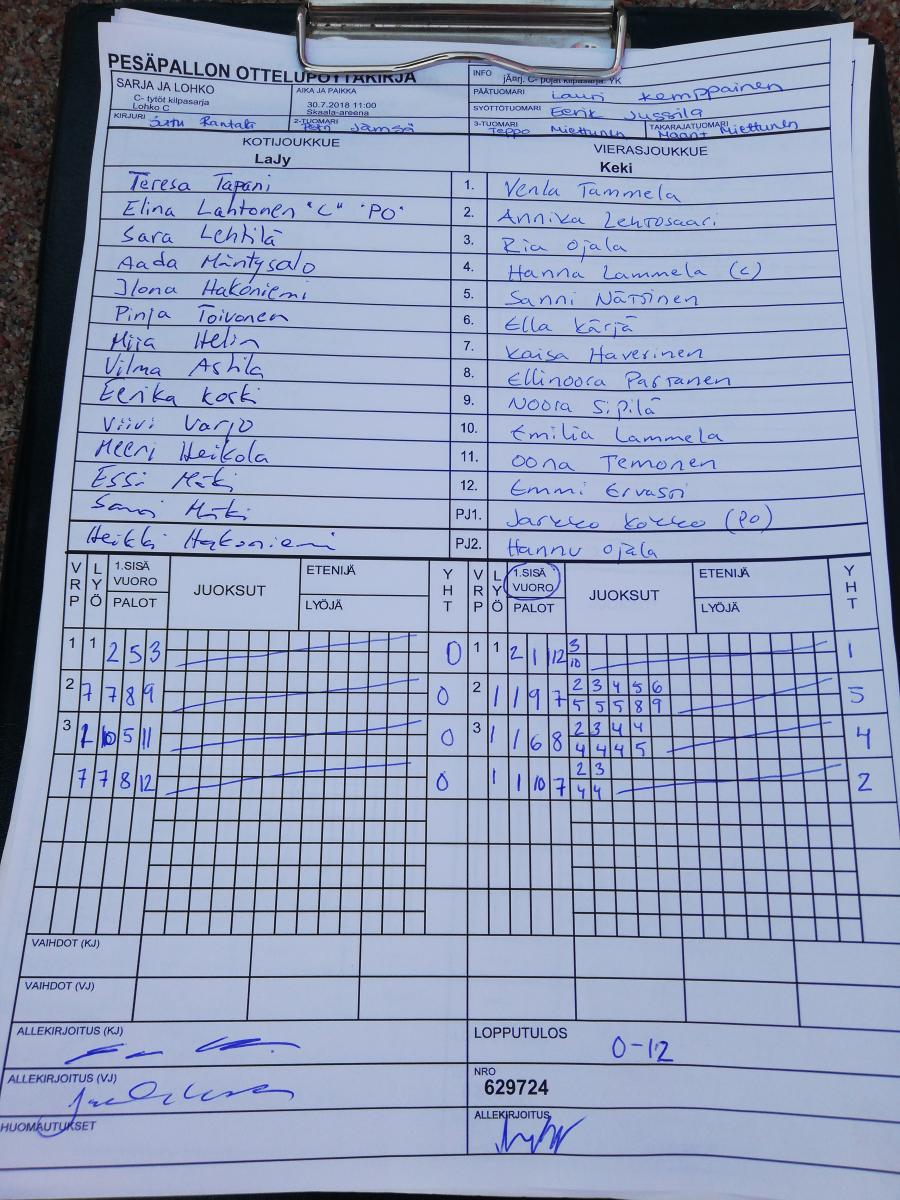 PESÄPALLON OTTELUPÖYTÄKIRJA
SARJA JA LOHKO
C- tytöt kilpasarja
Lohko C
AIKA JA PAIKKA
30.7.2018 11:00
Skaala-areena
INFO
C- pojat kilpasarja: YK
PÄÄTUOMARI Lauri Kemppainen
SYÖTTÖTUOMARI Eerik Jussila
KIRJURI Rantala
2-TUOMARI Petri Jämsä
3-TUOMARI Teppo Miettunen
TAKARAJATUOMARI Miettunen
KOTIJOUKKUE
LaJy
VIERASJOUKKUE
Keki
Teresa Tapani 1. Venla Tammela
Elina Lahtonen "C" "PO" 2. Annika Lehtosaari
Sara Lehtilä 3. Ria Ojala
Aada Mäntysalo 4. Hanna Lammela (C)
Ilona Hakoniemi 5. Sanni Närsinen
Pinja Toivonen 6. Ella Kärjä
Miia Helin 7. Kaisa Haverinen
Vilma Astila 8. Ellinoora Partanen
Eerika Koski 9. Noora Sipilä
Viivi Varjo 10. Emilia Lammela
Meeri Heikola 11. Oona Temonen
Essi Mäki 12. Emmi Ervasti
Sami Mäki PJ1. Jarkko Kokko (PO)
Heikki Hakoniemi PJ2. Hannu Ojala
VRP LYÖ 1.SISÄ VUORO PALOT JUOKSUT ETENIJÄ LYÖJÄ YHT VRP LYÖ 1.SISÄ VUORO PALOT JUOKSUT ETENIJÄ LYÖJÄ YHT
1 1 2 5 3 0 1 1 2 1 12 3 1
10
2 7 7 8 9 0 2 1 1 9 7 2 3 4 5 6 5
5 5 5 8 9
3 1 10 5 11 0 3 1 1 6 8 2 3 4 4 4
4 4 4 5
7 7 8 12 0 1 1 10 7 2 3 2
4 4
VAIHDOT (KJ)
VAIHDOT (VJ)
ALLEKIRJOITUS (KJ)
LOPPUTULOS 0-12
ALLEKIRJOITUS (VJ)
NRO
629724
HUOMAUTUKSET
ALLEKIRJOITUS